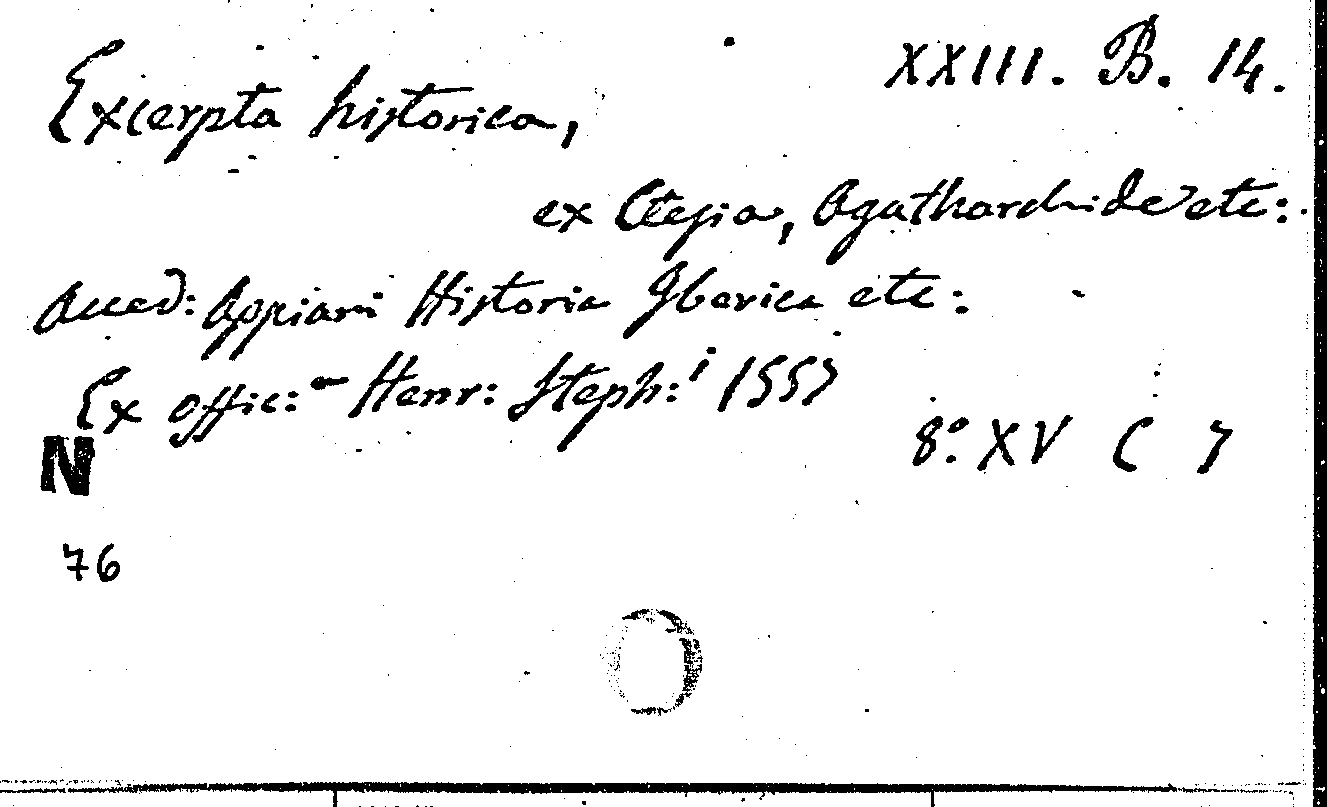 XXIII. B. 14.
Excerpta historica,
ex Ctesia, Agatharchide etc:
Acced: Appiani Historia Iberica etc:
Ex offic:a Henr: Steph:i 1557
8o. XV C 7
N
76